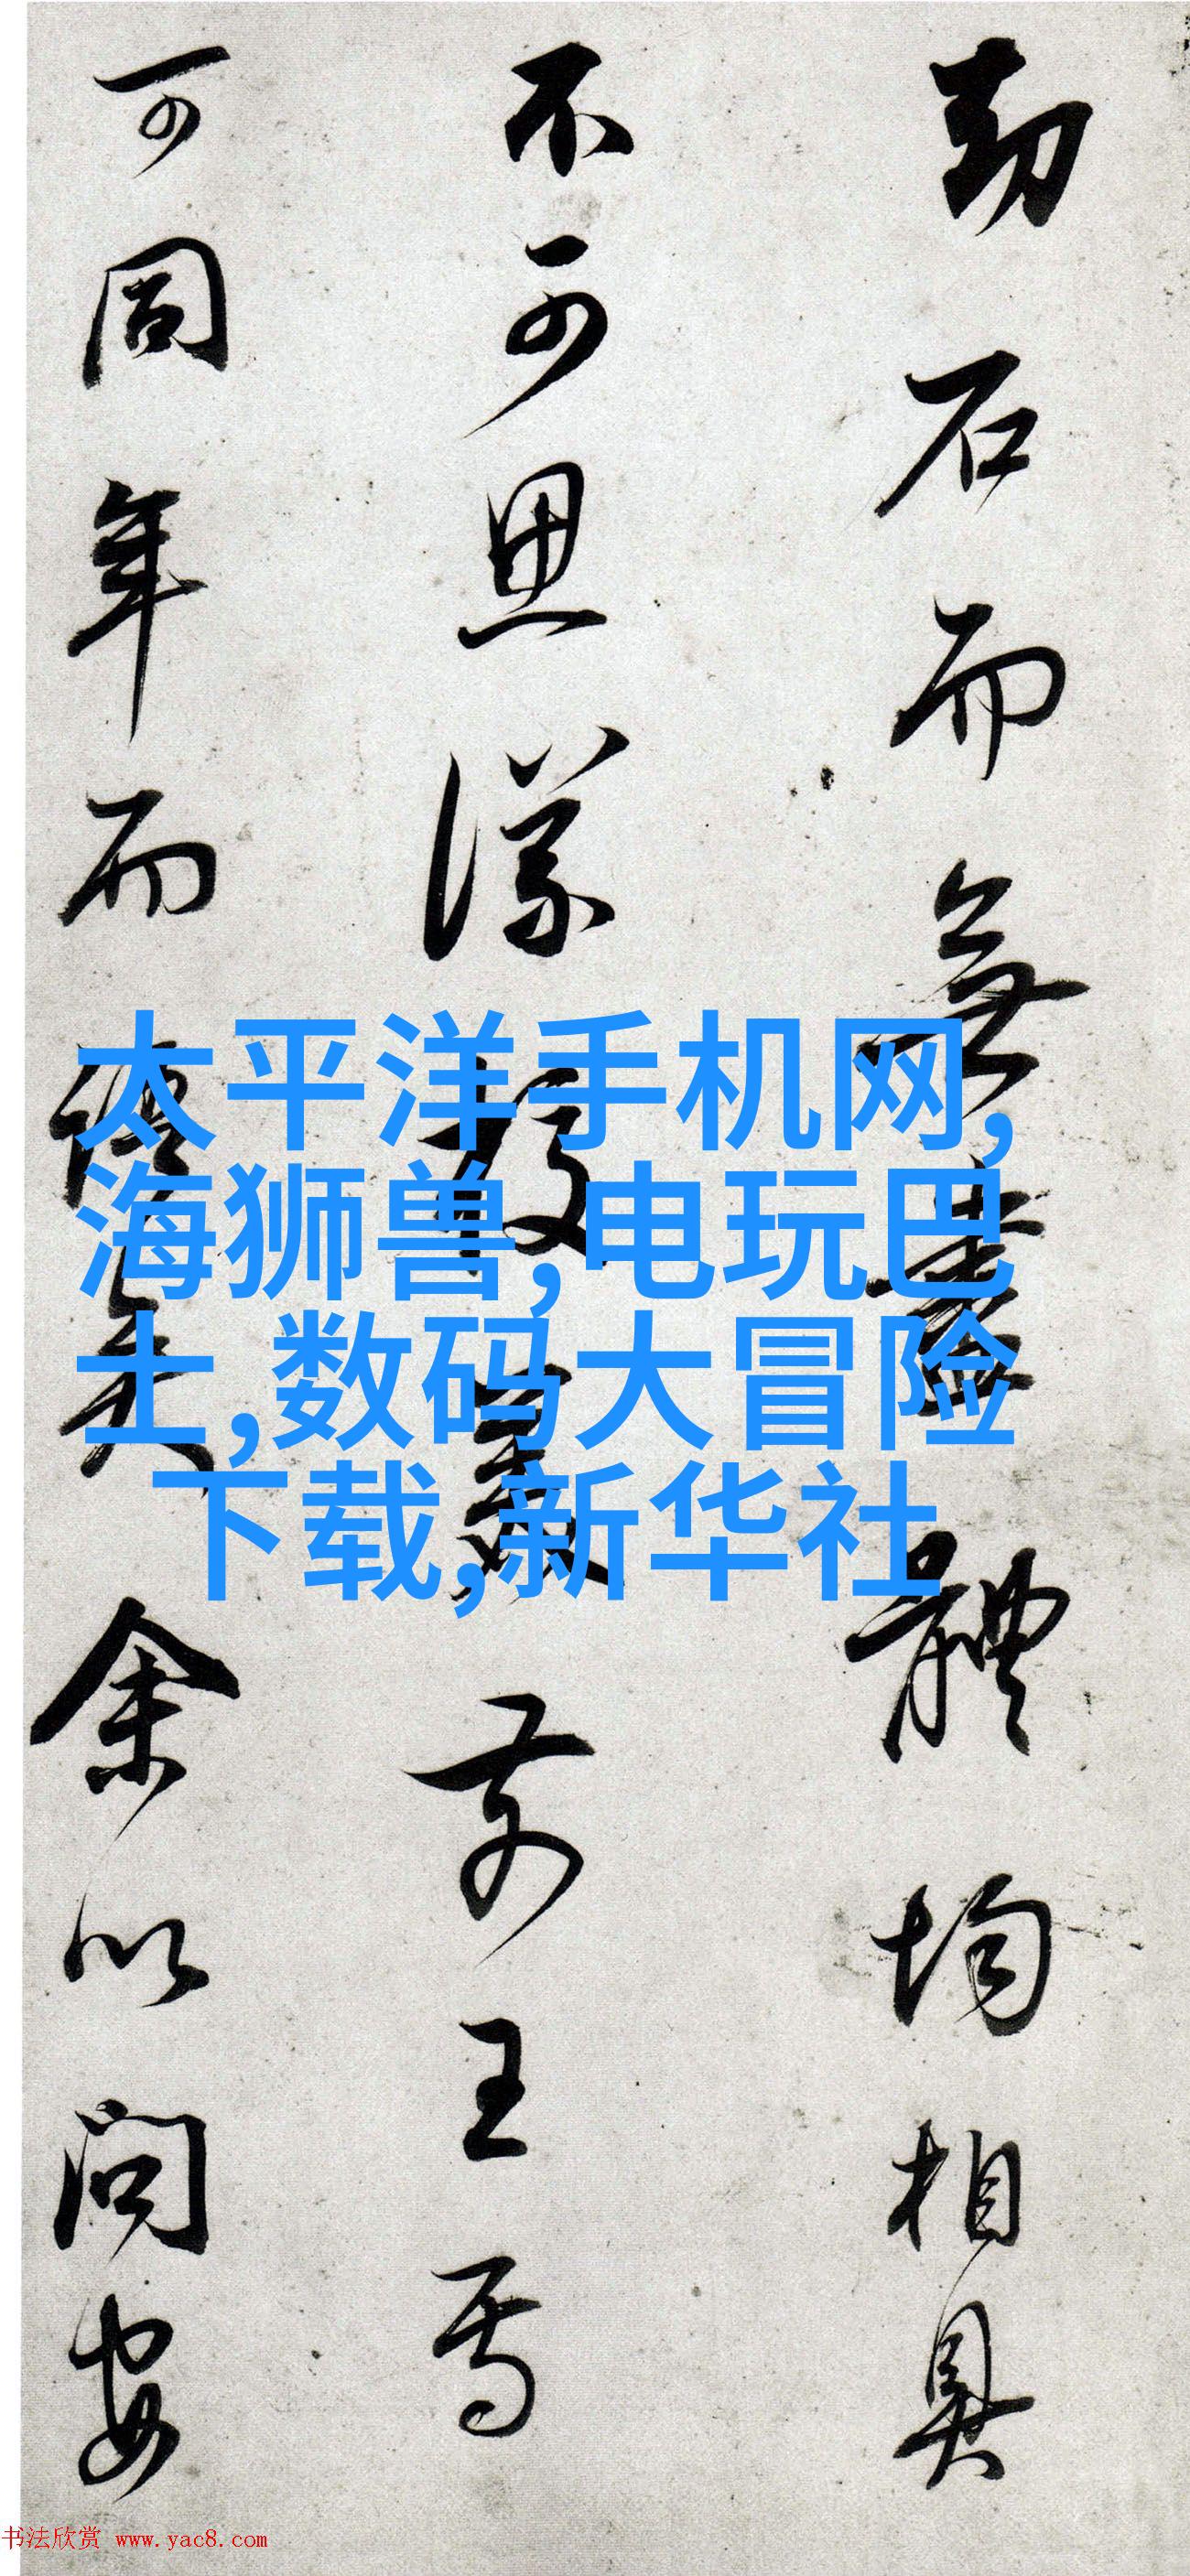 劫石而無盡體均相具
不可思議美前王焉
可同年而語矣余以問安
太平洋手机网,
海狮兽,电玩巴
士,数码大冒险
下载,新华社
书法欣赏 www.yac8.com